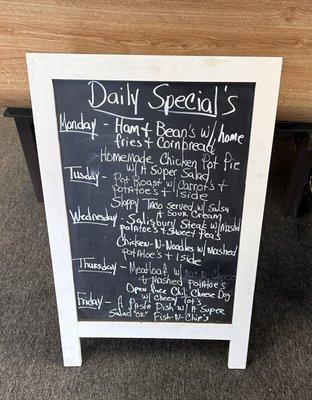 Daily Special's
Monday - Ham & Bean's w/ home
fries & Cornbread
Homemade Chicken Pot Pie
w/ A Super Salad
Tusday - Pot Roast w/ Carrot's &
potatoe's & 1 side
Sloppy Taco Served w/ Salsa
& Sour Cream
Wednesday - Salisbury Steak w/ Mashed
potatoe's & Sweet Pea's
Chicken-N-Noodles w/ Mashed
potatoe's & 1 side
Thursday - Meatloaf w/ Mac-N-Cheese
& Mashed potatoe's
Open face Chili Cheese Dog
w/ Cheesy Tot's
Friday - A Pasta Dish w/ A Super
Salad "OR" Fish-N-Chip's